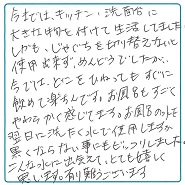 今までは、キッチン・洗面台に
大きな物を付けて生活してました
しかも、じゃぐちを切り替えないと
使用出来ず、めんどうでしたが、
今では、どこをひねってもすぐに
飲めて楽ちんです。お風呂もすごく
やわらかく感じてます。お風呂の水を
翌日に洗たく水で使用しますが
臭くならない事にもビックリしました。
こんな水に出会えて、とても嬉しく
思います。有り難うございます